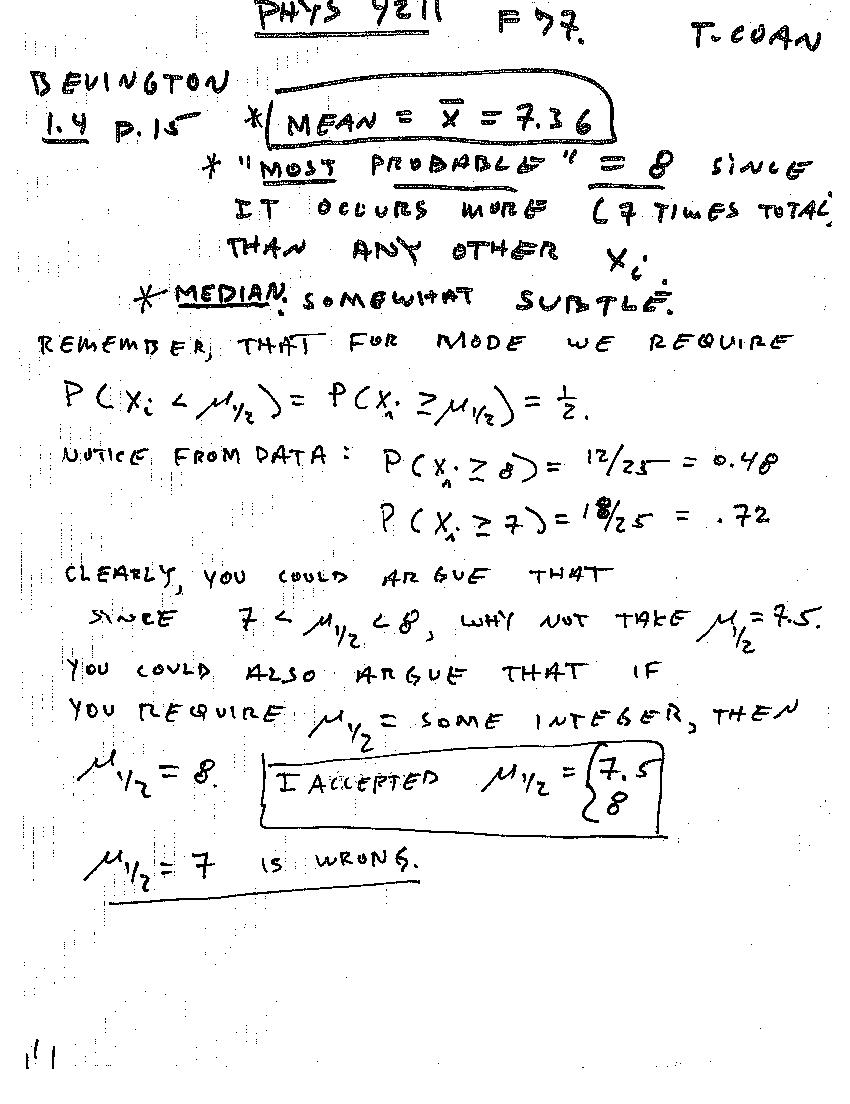 PHYS 4211 F 97. T. COAN
BEVINGTON
1.4 P.15 * MEAN = x̄ = 7.36
* "MOST PROBABLE" = 8 SINCE
IT OCCURS MORE (7 TIMES TOTAL)
THAN ANY OTHER Xi.
* MEDIAN: SOMEWHAT SUBTLE.
REMEMBER, THAT FOR MODE WE REQUIRE
P(Xi < μ1/2) = P(Xi ≥ μ1/2) = 1/2.
NOTICE FROM DATA: P(Xi ≥ 8) = 12/25 = 0.48
P(Xi ≥ 7) = 18/25 = .72
CLEARLY, YOU COULD ARGUE THAT
SINCE 7 < μ1/2 < 8, WHY NOT TAKE μ1/2 = 7.5.
YOU COULD ALSO ARGUE THAT IF
YOU REQUIRE μ1/2 = SOME INTEGER, THEN
μ1/2 = 8. I ACCEPTED μ1/2 = { 7.5
8
μ1/2 = 7 IS WRONG.